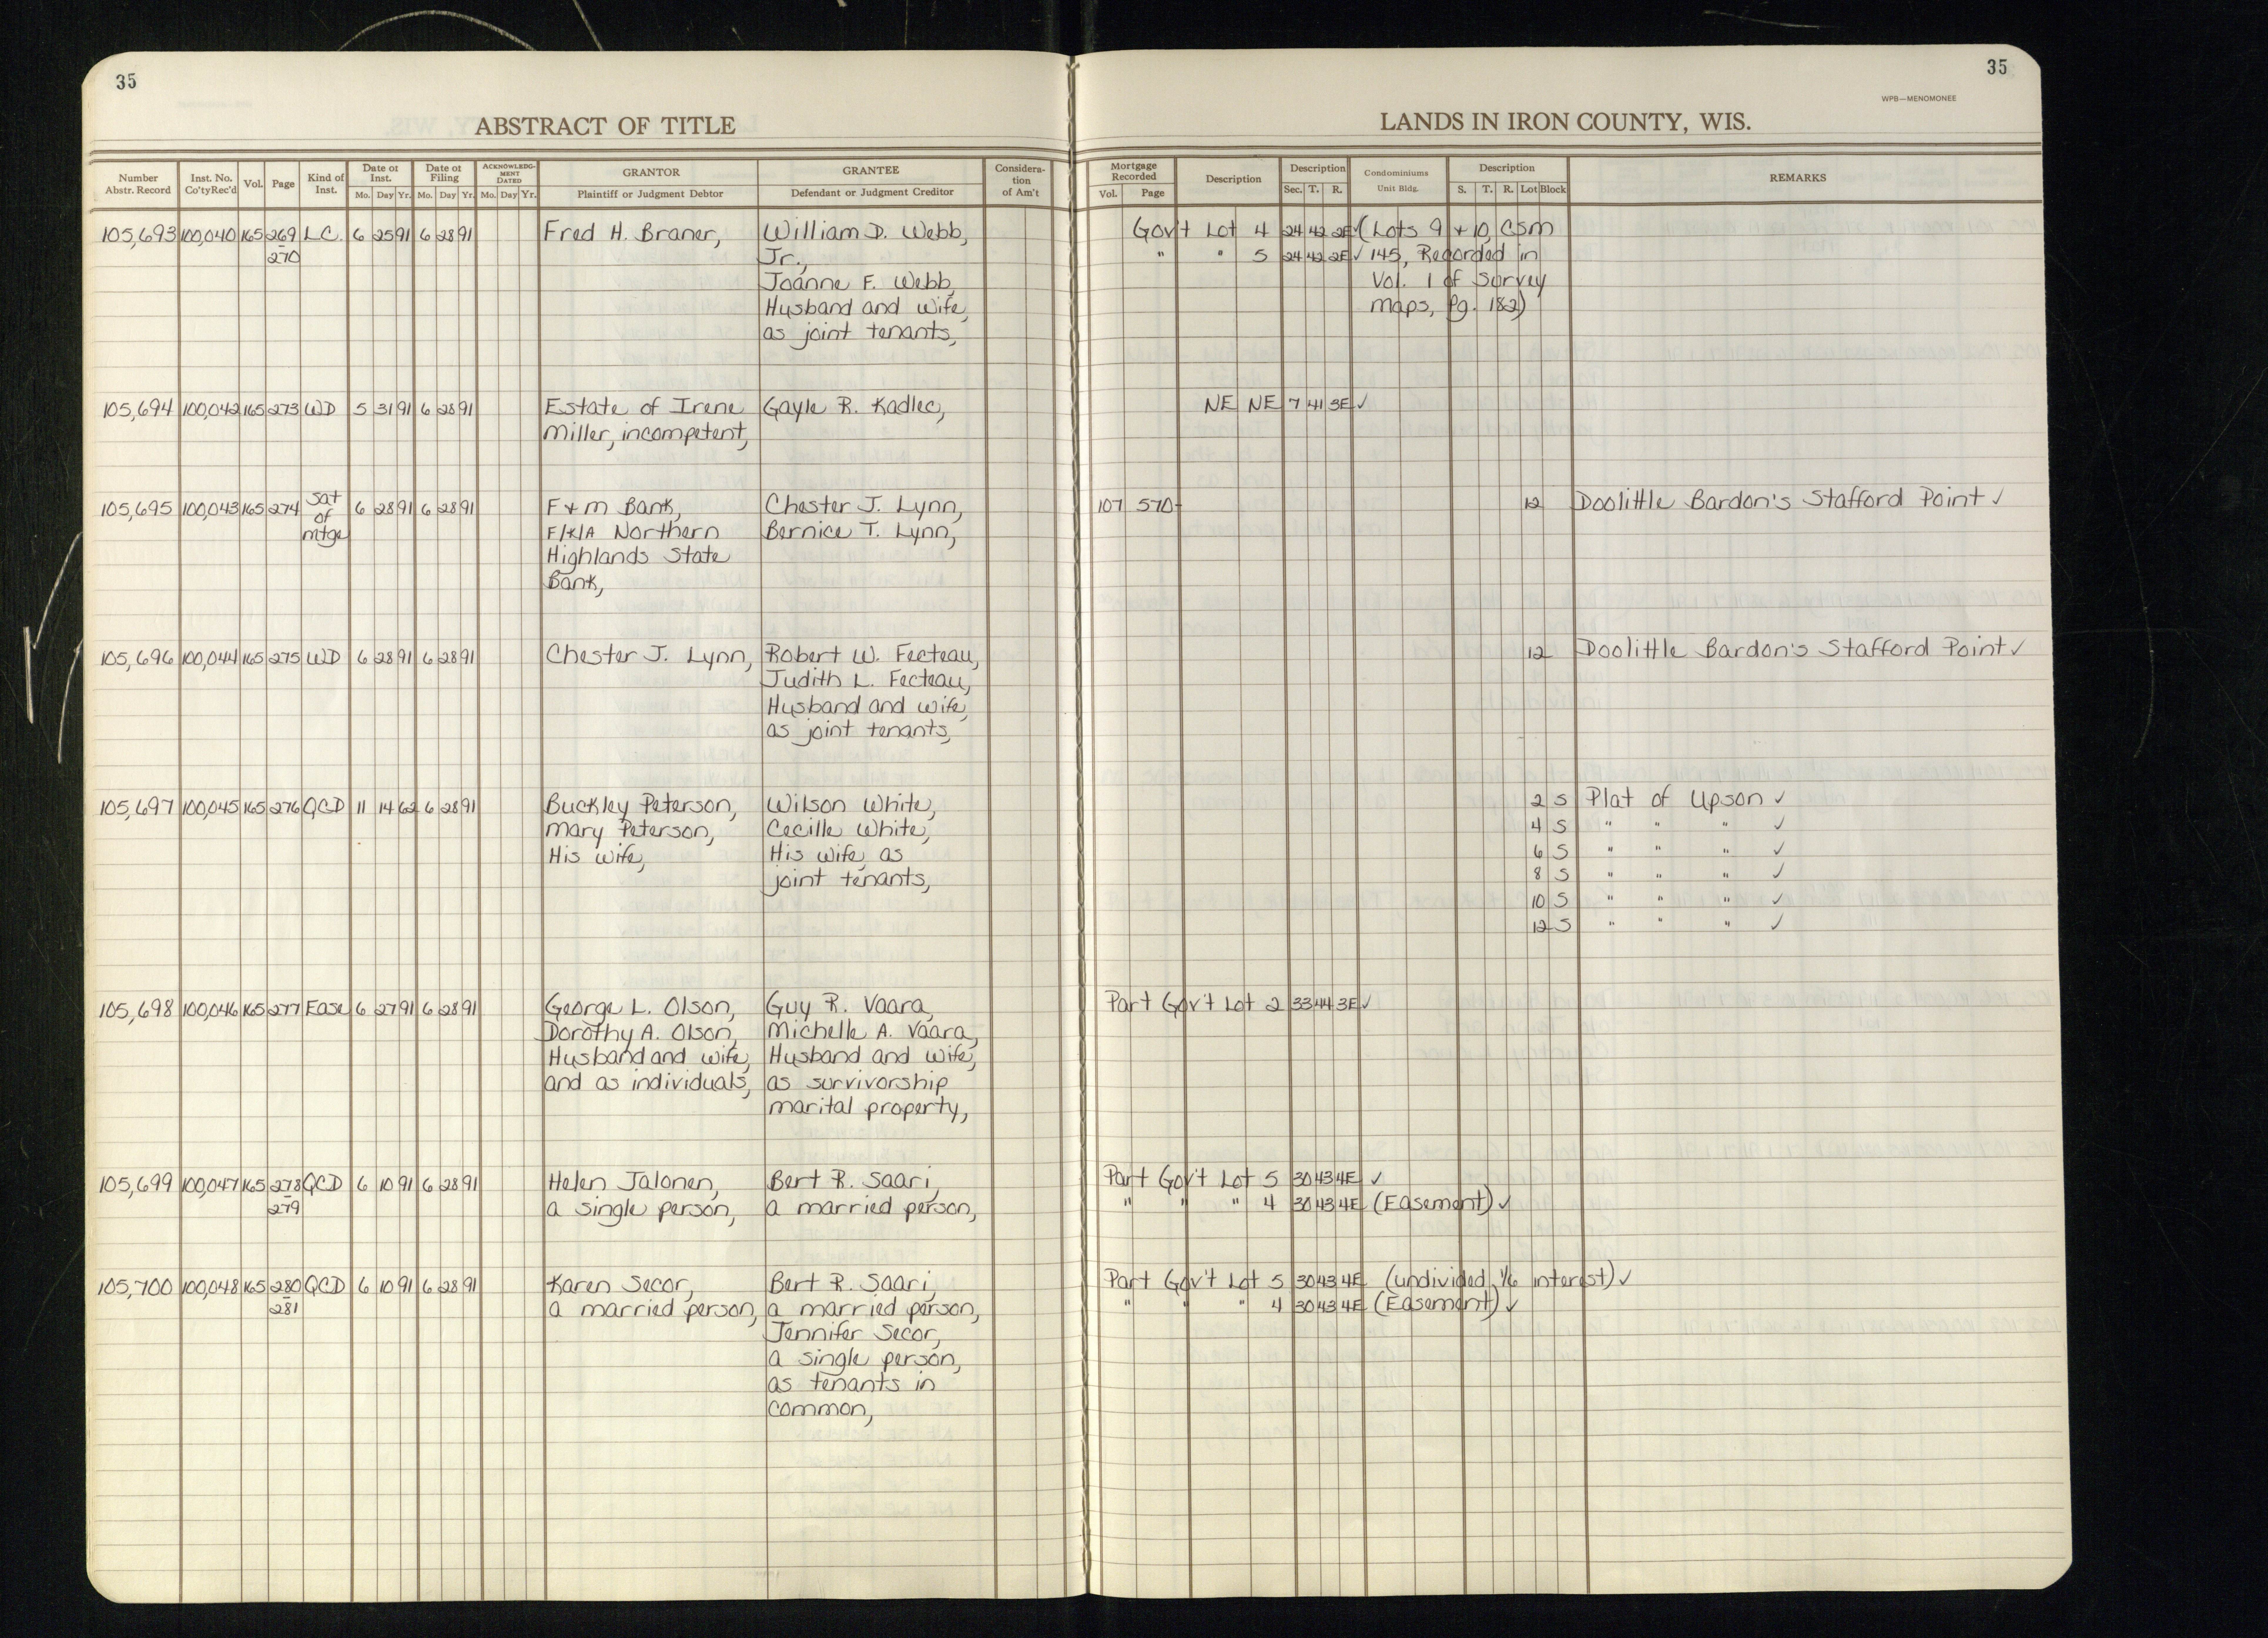 35
35
WPB—MENOMONEE
ABSTRACT OF TITLE
LANDS IN IRON COUNTY, WIS.
Number Abstr. Record | Inst. No. Co'ty Rec'd | Vol. | Page | Kind of Inst. | Date of Inst. Mo. Day Yr. | Date of Filing Mo. Day Yr. | ACKNOWLEDGMENT DATED Mo. Day Yr. | GRANTOR Plaintiff or Judgment Debtor | GRANTEE Defendant or Judgment Creditor | Consideration of Am't | Mortgage Recorded Vol. Page | Description | Description Sec. T. R. | Condominiums Unit Bldg. | Description S. T. R. Lot Block | REMARKS
105,693 100,040 165 269 L.C. 6 25 91 6 28 91 Fred H. Braner, William D. Webb, Gov't Lot 4 24 42 2E ✓ (Lots 9 + 10, CSM
270 Jr., " " 5 24 42 2E ✓ 145, Recorded in
Joanne F. Webb, Vol. 1 of Survey
Husband and wife, maps, Pg. 182)
as joint tenants,
105,694 100,042 165 273 WD 5 31 91 6 28 91 Estate of Irene Gayle R. Kadlec, NE NE 7 41 3E ✓
Miller, incompetent,
105,695 100,043 165 274 Sat of mtge 6 28 91 6 28 91 F + m Bank, Chester J. Lynn, 107 570 12 Doolittle Bardon's Stafford Point ✓
F/K/A Northern Bernice T. Lynn,
Highlands State
Bank,
105,696 100,044 165 275 WD 6 28 91 6 28 91 Chester J. Lynn, Robert W. Fecteau, 12 Doolittle Bardon's Stafford Point ✓
Judith L. Fecteau,
Husband and wife,
as joint tenants,
105,697 100,045 165 276 QCD 11 14 62 6 28 91 Buckley Peterson, Wilson White, 2 S Plat of Upson ✓
Mary Peterson, Cecille White, 4 S " " " ✓
His wife, His wife, as 6 S " " " ✓
joint tenants, 8 S " " " ✓
10 S " " " ✓
12 S " " " ✓
105,698 100,046 165 277 Ease 6 27 91 6 28 91 George L. Olson, Guy R. Vaara, Part Gov't Lot 2 33 44 3E ✓
Dorothy A. Olson, Michelle A. Vaara,
Husband and wife, Husband and wife,
and as individuals, as survivorship
marital property,
105,699 100,047 165 278 QCD 6 10 91 6 28 91 Helen Jalonen, Bert R. Saari, Part Gov't Lot 5 30 43 4E ✓
279 a single person, a married person, " " " 4 30 43 4E (Easement) ✓
105,700 100,048 165 280 QCD 6 10 91 6 28 91 Karen Secor, Bert R. Saari, Part Gov't Lot 5 30 43 4E (undivided 1/6 interest) ✓
281 a married person, a married person, " " " 4 30 43 4E (Easement) ✓
Jennifer Secor,
a single person,
as tenants in
common,